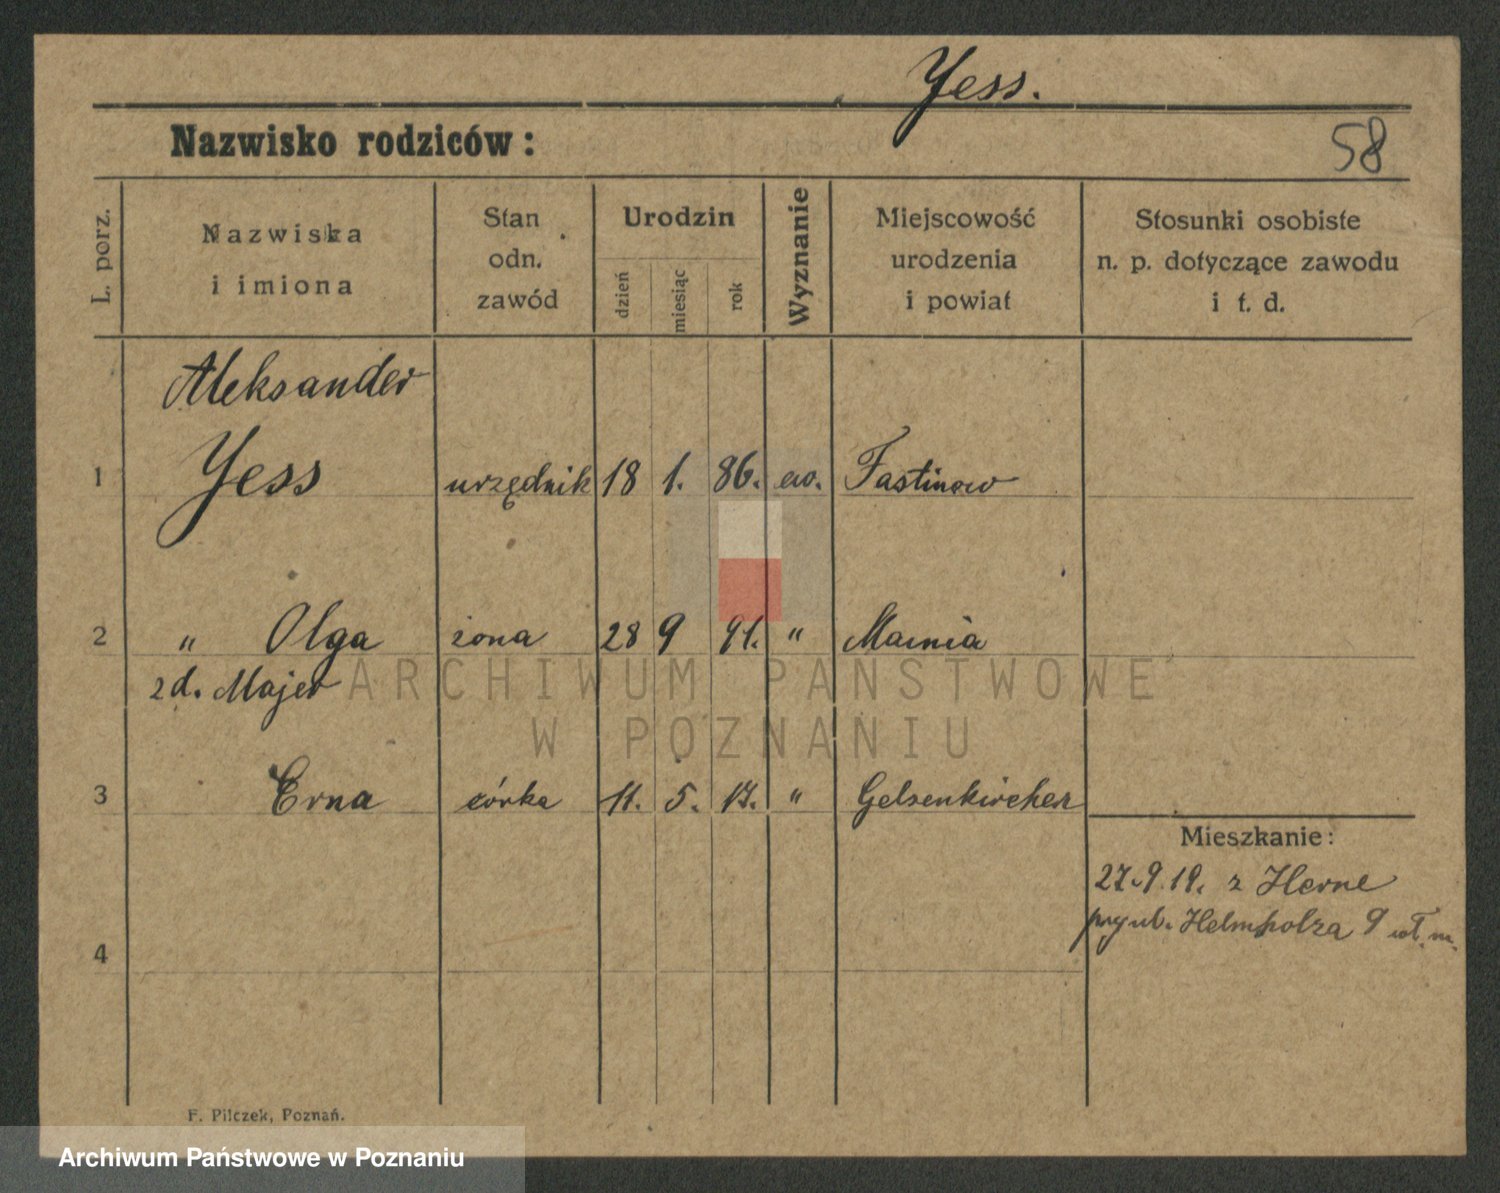 Yess.
Nazwisko rodziców:
58
L. porz.
Nazwiska
i imiona
Stan
odn.
zawód
Urodzin
dzień
miesiąc
rok
Wyznanie
Miejscowość
urodzenia
i powiat
Stosunki osobiste
n. p. dotyczące zawodu
i t. d.
Aleksander
1 Yess urzędnik 18 1. 86. ew. Fastinow
2 " Olga żona 28 9 91. "
zd. Majer
3 Erna córka 11. 5. 17. " Gelsenkirchen
Mieszkanie:
27.9.19. z Herne
przyb. Helmholza 9
4
F. Pilczek, Poznań.
ARCHIWUM PAŃSTWOWE
W POZNANIU
Archiwum Państwowe w Poznaniu